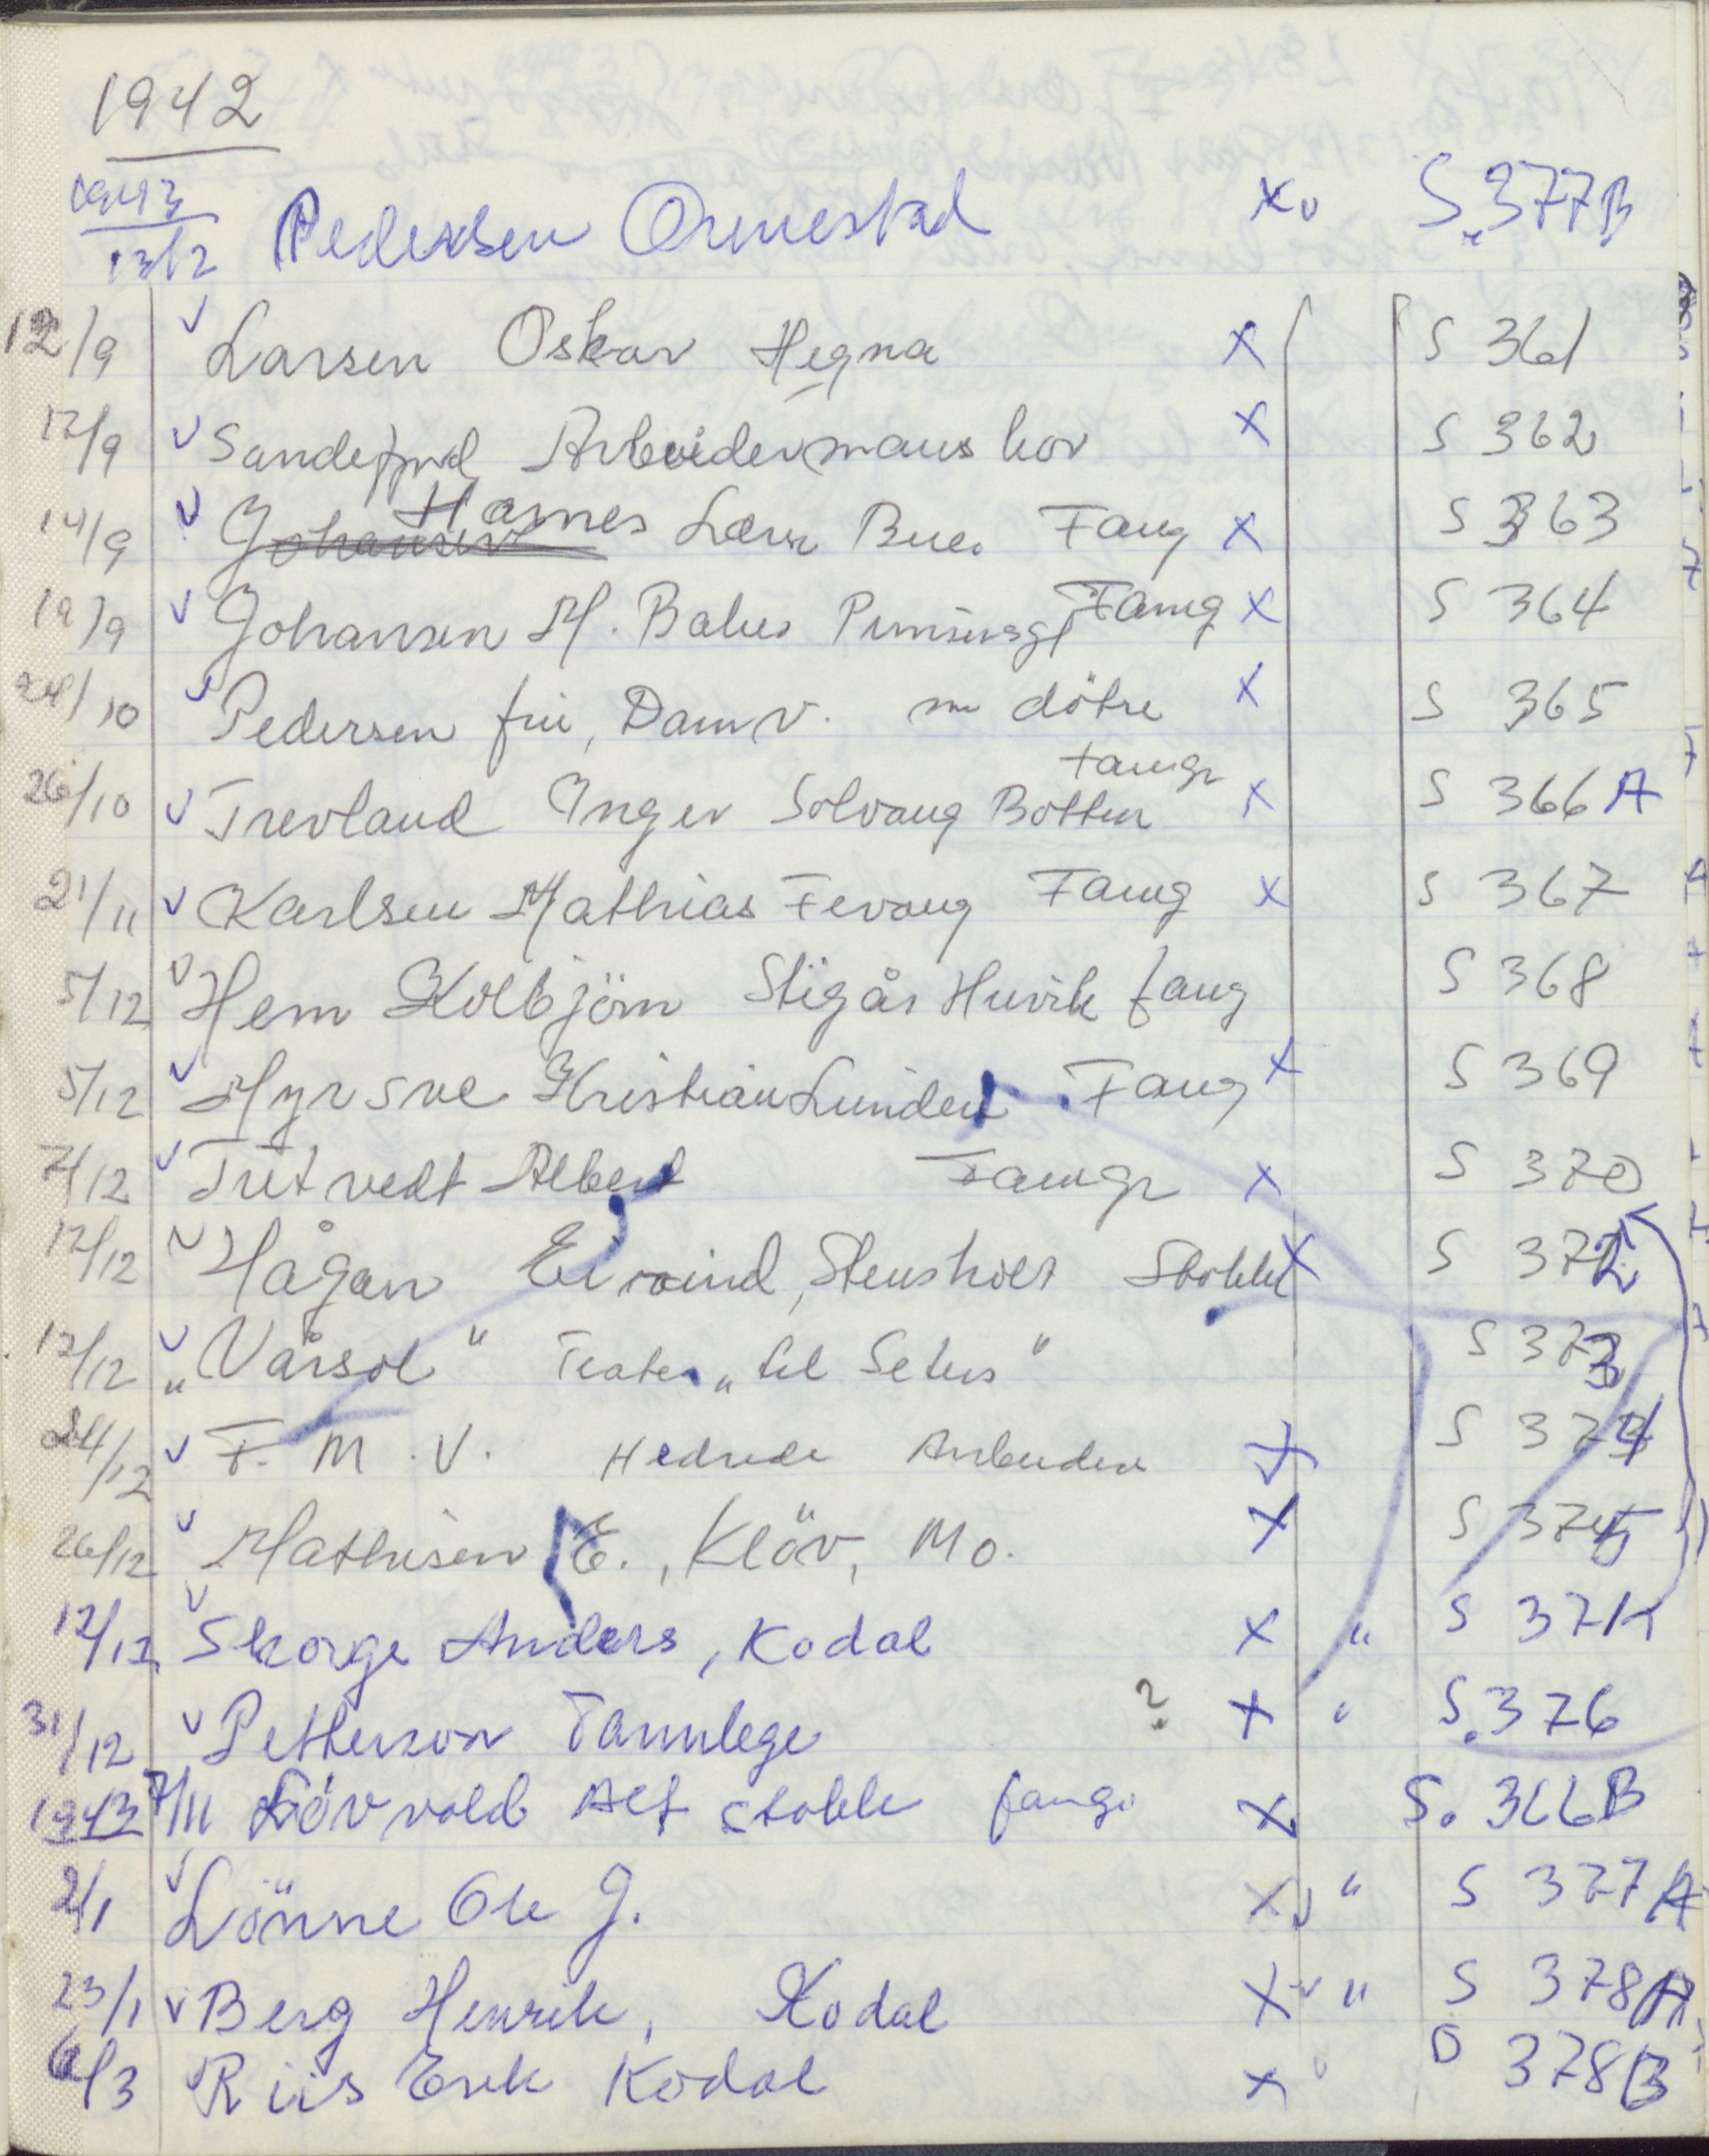 1942
1943
13/2 Pedersen Ormestad x v S. 377B
12/9 v Larsen Oskar Hegna x S 361
12/9 v Sandefjord Arbeidermanskor x S 362
14/9 v Johansen Hames Lærer Bue. Fang x S 363
19/9 v Johansen M. Bakes Fang x S 364
24/10 v Pedersen fru, Damv. m döhe x S 365
Fangr
26/10 v Trevland Inger Solvang Botten x S 366 A
21/11 v Karlsen Mathias Fevang Fang x S 367
5/12 v Hem Kolbjörn Stigår Huvik fang S 368
5/12 v Myrsve Kristian Lunden Fang x S 369
7/12 v Tutvedt Albert Fangr x S 370
12/12 v Hågan Eivind, Stensholt Stokke x S 372
12/12 v "Vårsol" Teater "til Seters" S 373
24/12 v F. M. V. Hedrede Arbeidere x S 374
26/12 v Mathisen E., Klöv, Mo. x S 375
12/12 v Skorge Anders, Kodal x " S 371
31/12 v Petterson Tannlege ? x " S. 376
1943 7/11 Lövvold Alf Stokke fang. x S. 366B
2/1 v Lönne Ole G. x v " S 377 A
23/1 v Berg Henrik, Kodal x v " S 378A
6/3 v Riis Erik Kodal x v S 378B